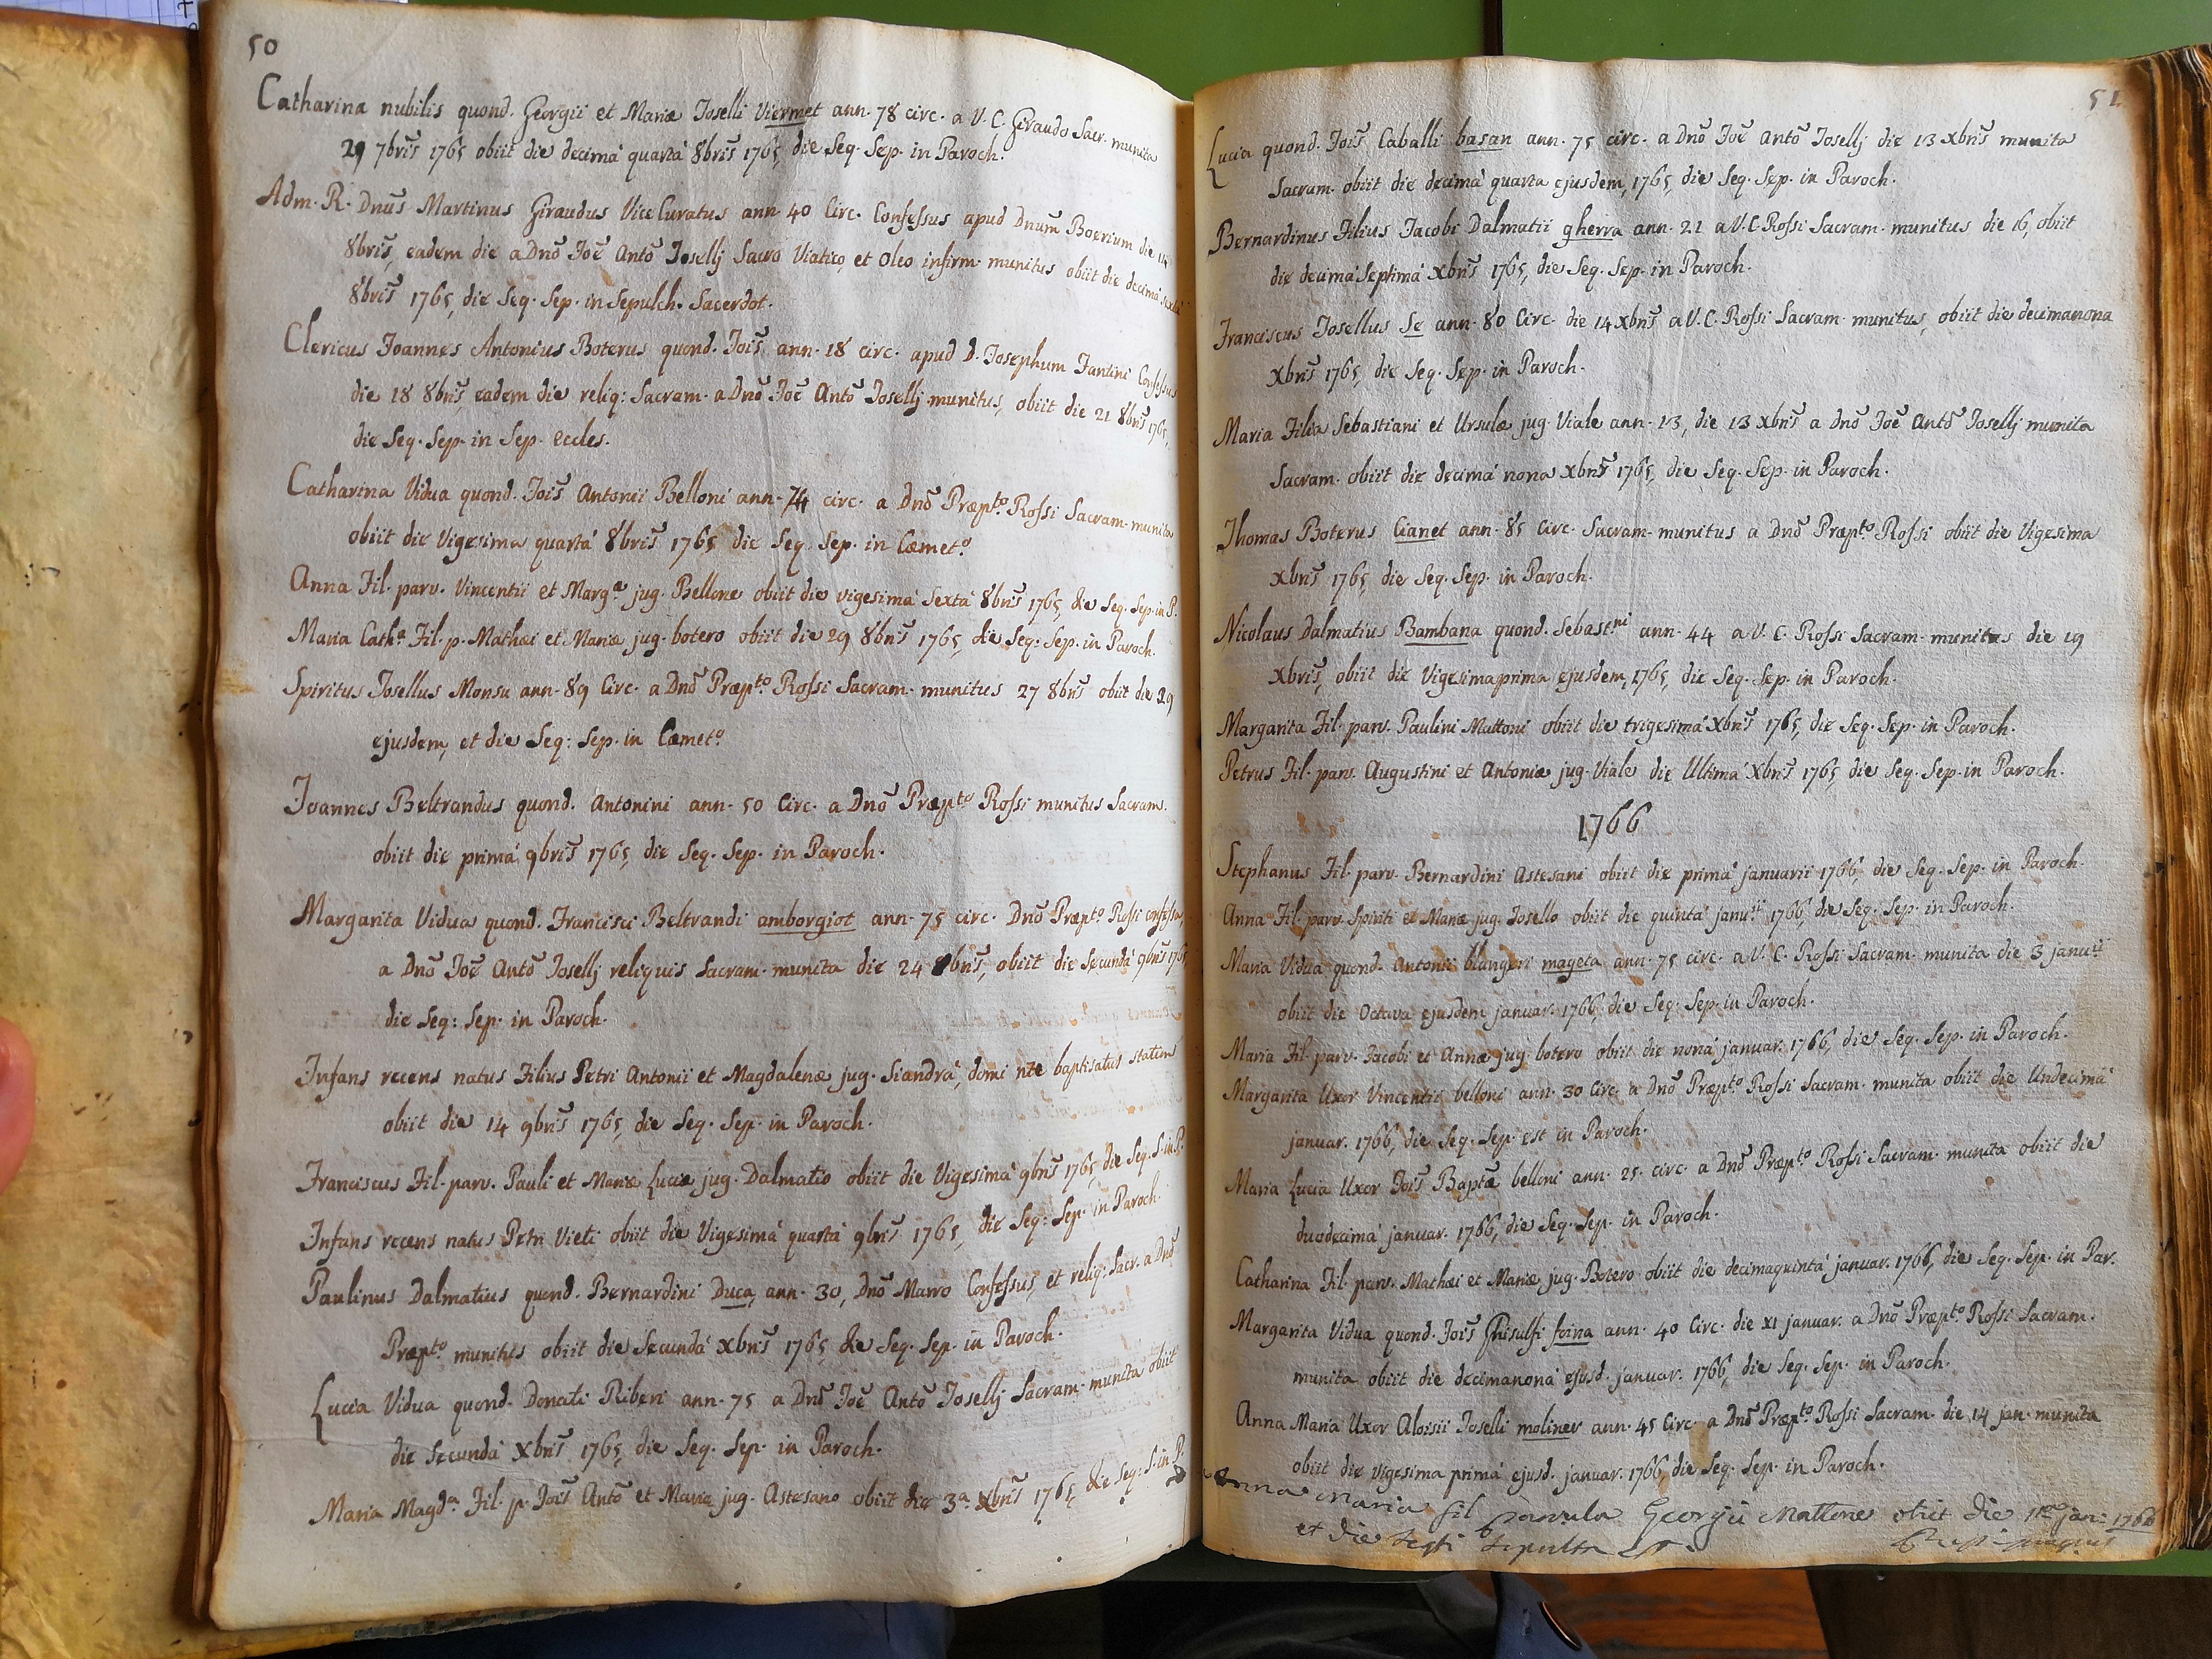 50
Catharina nubilis quond. Georgii et Mariæ Joselli Viermet ann. 78 circ. a V. C. Giraudo Sacr. munita
29 7bris 1765 obiit die decimá quartá 8bris 1765, die Seq. Sep. in Paroch.
Adm. R. Dnus Martinus Giraudus Vice Curatus ann. 40 Circ. Confessus apud Dnum Boerium die 14
8bris, eadem die a Dno Joe Anto Josellj Sacro Viatico, et Oleo infirm. munitus obiit die decimá sextá
8bris 1765, die Seq. Sep. in Sepulch. Sacerdot.
Clericus Joannes Antonius Boterus quond. Jois ann. 18 circ. apud D. Josephum Fantini Confessus
die 18 8bris, eadem die reliq: Sacram. a Dno Joe Anto Josellj munitus, obiit die 21 8bris 1765,
die Seq. Sep. in Sep. Eccles.
Catharina Vidua quond. Jois Antonii Belloni ann. 74 circ. a Dno Præpto Rossi Sacram. munita
obiit die Vigesima quartá 8bris 1765 die Seq. Sep. in Cœmeto.
Anna Fil. parv. Vincentii et Marga jug. Bellone obiit die vigesimá Sextá 8bris 1765, die Seq. Sep. in P.
Maria Catha Fil. p. Mathæi et Mariæ jug. botero obiit die 29 8bris 1765, die Seq: Sep. in Paroch.
Spiritus Josellus Monsu ann. 89 Circ. a Dno Præpto Rossi Sacram. munitus 27 8bris obiit die 29
ejusdem, et die Seq: Sep. in Cœmeto
Joannes Beltrandus quond. Antonini ann. 50 Circ. a Dno Præpto Rossi munitus Sacram.
obiit die primá 9bris 1765, die Seq. Sep. in Paroch.
Margarita Vidua quond. Francisci Beltrandi amborgiot ann. 75 circ. Dno Præpto Rossi confessa,
a Dno Joe Anto Josellj reliquis Sacram. munita die 24 8bris, obiit die Secundá 9bris 1765,
die Seq: Sep. in Paroch.
Infans recens natus Filius Petri Antonii et Magdalenæ jug. Siandrá, domi nte baptisatus statim
obiit die 14 9bris 1765, die Seq. Sep. in Paroch.
Franciscus Fil. parv. Pauli et Mariæ Luciæ jug. Dalmatio obiit die Vigesimá 9bris 1765, die Seq. S. in P.
Infans recens natus Petri Vieti obiit die Vigesimá quartá 9bris 1765, die Seq: Sep. in Paroch.
Paulinus Dalmatius quond. Bernardini Duca, ann. 30, Dno Marro Confessus, et reliq: Sacr. a Dno
Præpto munitus obiit die Secundá Xbris 1765 die Seq. Sep. in Paroch.
Lucia Vidua quond. Donati Riberi ann. 75 a Dno Joe Anto Josellj Sacram. munita obiit
die Secundá Xbris 1765, die Seq. Sep. in Paroch.
Maria Magda Fil. p. Jois Anto et Mariæ jug. Astesano obiit die 3a Xbris 1765, die Seq: S. in P.
51
Lucia quond. Jois Caballi basan ann. 75 circ. a Dno Joe Anto Josellj die 13 Xbris munita
Sacram. obiit die decimá quarta ejusdem, 1765, die Seq. Sep. in Paroch.
Bernardinus Filius Jacobi Dalmatii gherra ann. 21 a V. C. Rossi Sacram. munitus die 16, obiit
die decimá Septimá Xbris 1765, die Seq. Sep. in Paroch.
Franciscus Josellus Se ann. 80 Circ. die 14 Xbris a V. C. Rossi Sacram. munitus, obiit die decimanona
Xbris 1765, die Seq. Sep. in Paroch.
Maria Filia Sebastiani et Ursulæ jug. Viale ann. 13, die 13 Xbris a Dno Joe Anto Josellj munita
Sacram. obiit die decimá nona Xbris 1765, die Seq. Sep. in Paroch.
Thomas Boterus Cianet ann. 85 Circ. Sacram. munitus a Dno Præpto Rossi obiit die Vigesima
Xbris 1765, die Seq. Sep. in Paroch.
Nicolaus Dalmatius Bambana quond. Sebastni ann. 44 a V. C. Rossi Sacram. munitus die 19
Xbris, obiit die Vigesimaprima ejusdem, 1765, die Seq. Sep. in Paroch.
Margarita Fil. parv. Paulini Mattoni obiit die trigesimá Xbris 1765, die Seq. Sep. in Paroch.
Petrus Fil. parv. Augustini et Antoniæ jug. Viale die Ultimá Xbris 1765, die Seq. Sep. in Paroch.
1766
Stephanus Fil. parv. Bernardini Astesani obiit die primá januarii 1766, die Seq. Sep. in Paroch.
Anna Fil. parv. Spiriti et Mariæ jug. Josello obiit die quintá januii 1766, die Seq. Sep. in Paroch.
Maria Vidua quond. Antonii blangeri mageta ann. 75 circ. a V. C. Rossi Sacram. munita die 3 januii
obiit die Octava ejusdem januar. 1766, die Seq. Sep. in Paroch.
Maria Fil. parv. Jacobi et Annæ jug. botero obiit die noná januar. 1766, die Seq. Sep. in Paroch.
Margarita Uxor Vincentii belloni ann. 30 Circ. a Dno Præpto Rossi Sacram. munita obiit die Undecimá
januar. 1766, die Seq. Sep. est in Paroch.
Maria Lucia Uxor Jois Baptæ belloni ann. 25 circ. a Dno Præpto Rossi Sacram. munita obiit die
duodecimá januar. 1766, die Seq. Sep. in Paroch.
Catharina Fil. parv. Mathæi et Mariæ jug. Botero obiit die decimaquintá januar. 1766, die Seq. Sep. in Par.
Margarita Vidua quond. Jois Ghisulfi foina ann. 40 Circ. die XI januar. a Dno Præpto Rossi Sacram.
munita obiit die decimanoná ejusd. januar. 1766 die Seq. Sep. in Paroch.
Anna Maria Uxor Aloisii Joselli moliner ann. 45 Circ. a Dno Præpto Rossi Sacram. die 14 jan. munita
obiit die vigesima primá ejusd. januar. 1766, die Seq. Sep. in Paroch.
Anna Maria fil parvula Georgii Mattone obiit die jan: 1766
et die sepulta est.